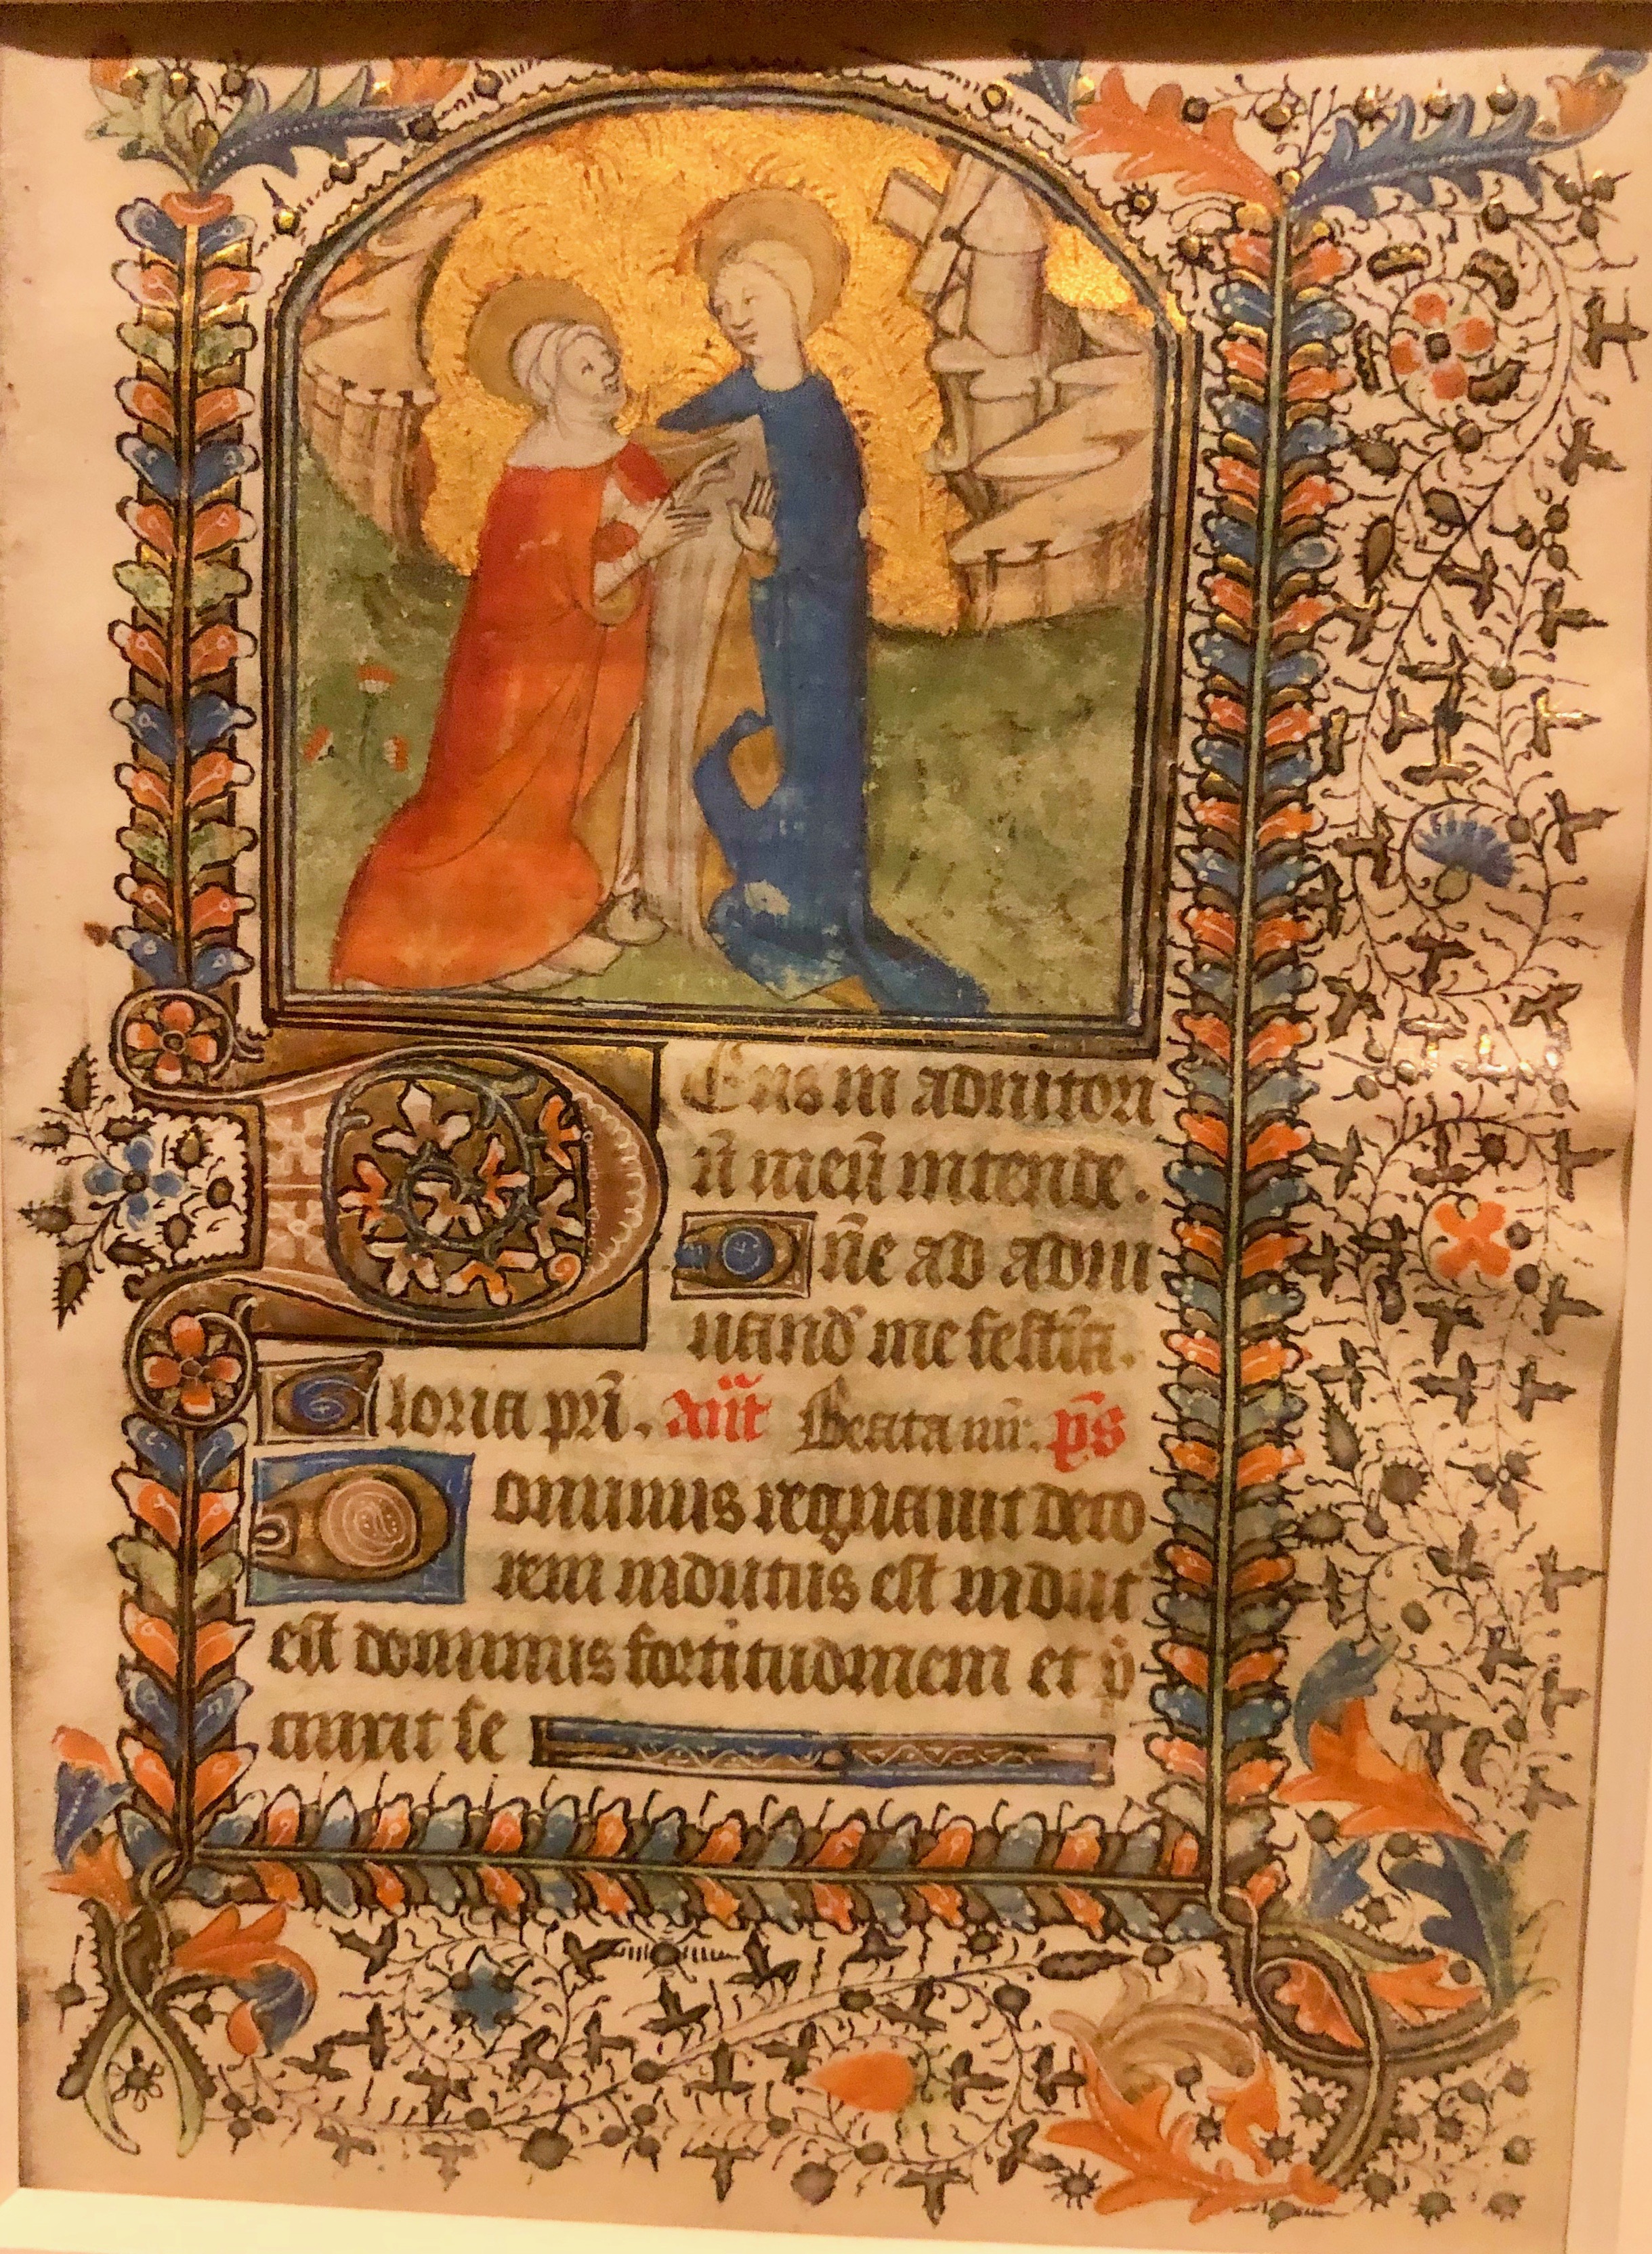 Deus in adiutori
ū meū intende.
Dn̄e ad adiu
uand̄ me festīa.
Gloria pr̄i. añt Beata mr̄. p̄s
Dominus regnauit deco
rem indutus est indut᾽
est dominus fortitudinem et p̄
cinxit se